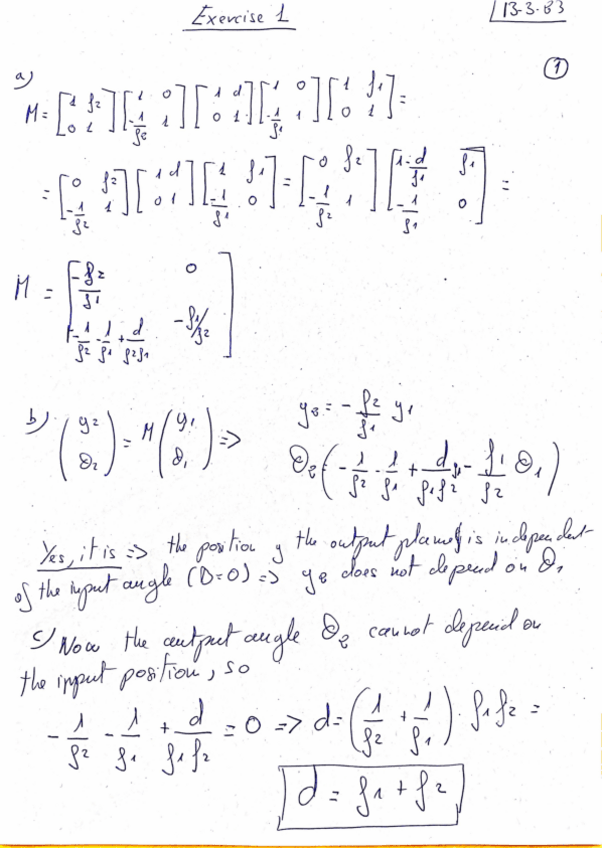 Exercise 1
13-3-B3
1
a)
M = [1 f2; 0 1] [1 0; -1/f2 1] [1 d; 0 1] [1 0; -1/f1 1] [1 f1; 0 1] =
= [0 f2; -1/f2 1] [1 d; 0 1] [1 f1; -1/f1 0] = [0 f2; -1/f2 1] [1-d/f1 f1; -1/f1 0] =
M = [-f2/f1 0; -1/f2 - 1/f1 + d/f2f1 -f1/f2]
b) (y2; θ2) = M (y1; θ1) => y2 = - f2/f1 y1
θ2 (- 1/f2 - 1/f1 + d/f1f2 y1 - f1/f2 θ1)
Yes, it is => the position y the output plane is independent
of the input angle (D=0) => y2 does not depend on θ1
c) Now the output angle θ2 cannot depend on
the input position, so
- 1/f2 - 1/f1 + d/f1f2 = 0 => d = (1/f2 + 1/f1) · f1f2 =
d = f1 + f2